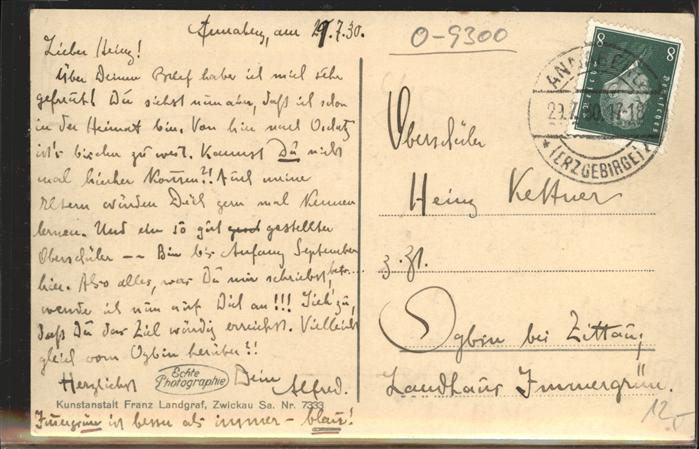 Annaberg, am 29.7.30.
Lieber Heinz!
Über Deinen Brief habe ich mich sehr
gefreut! Du siehst nun, daß ich schon
in der Heimat bin. Von hier nach Oschatz
ist's bischen zu weit. Kannst Du nicht
mal hierher kommen?! Auch meine
Eltern würden Dich gern mal kennen
lernen. Und ein so gut gestellter
Oberschüler -- Bin bis Anfang September
hier. Also alles, was Du mir schriebst,
wende ich nun auf Dich an!!! Sieh' zu,
daß Du das Ziel würdig erreichst. Vielleicht
gleich vom Oybin herüber?!
Herzlichst Dein Alfred.
Echte
Photographie
Kunstanstalt Franz Landgraf, Zwickau Sa. Nr. 7333
Immergrün ist besser als immer – blau!
O-9300
8 8
ANNABERG
29.7.30.17-18
* (ERZGEBIRGE)
Oberschüler
Heinz Kettner
z. Zt.
Oybin bei Zittau,
Landhaus Immergrün.
12,-